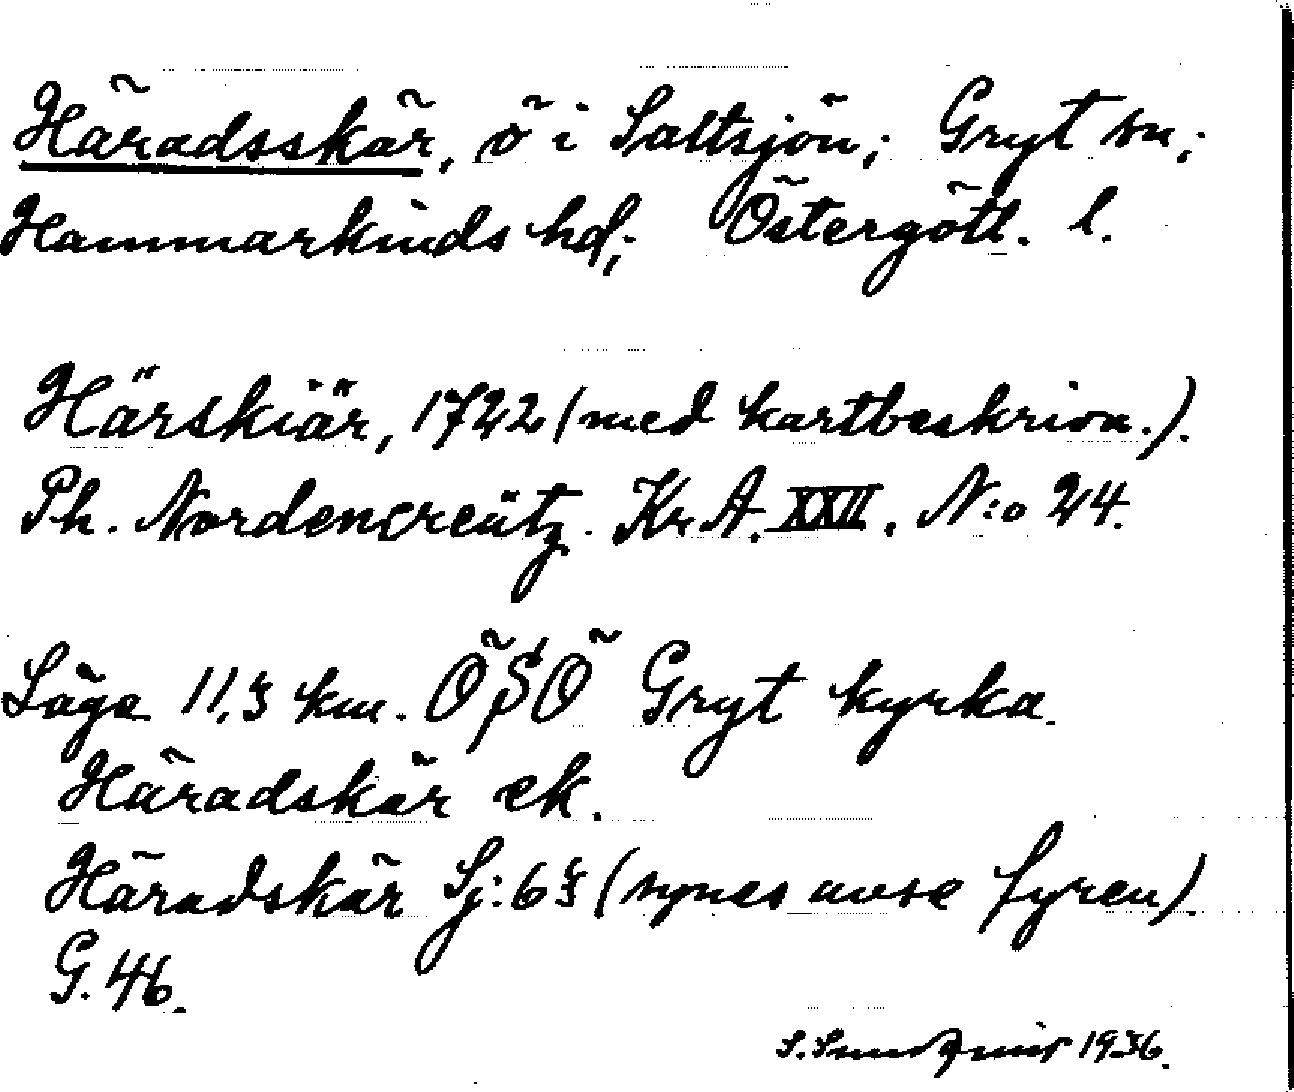 Häradsskär, ö i Saltsjön; Gryt sn;
Hammarkinds hd; Östergötl. l.
Härskiär, 1722 (med kartbeskrivn.).
Ph. Nordencreütz. Kr. A. XXII. N:o 24.
Läge 11,5 km. ÖSÖ Gryt kyrka.
Häradskär ek.
Häradskär Sj: 65 (synes avse fyren).
G. 46.
1936.